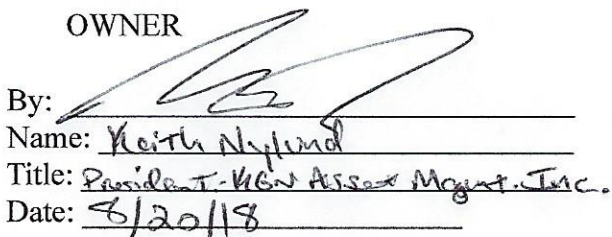 OWNER
By:
Name: Keith Nylund
Title: President-KGN Asset Mgmt. Inc.
Date: 8/20/18